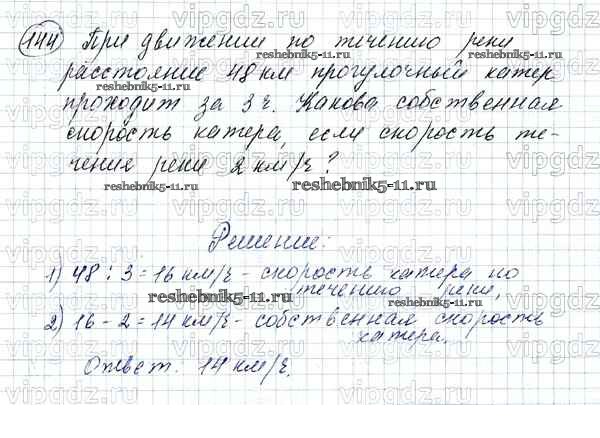 144 При движении по течению реки
расстояние 48 км прогулочный катер
проходит за 3 ч. Какова собственная
скорость катера, если скорость те-
чения реки 2 км/ч?
Решение:
1) 48 : 3 = 16 км/ч - скорость катера по
течению реки,
2) 16 - 2 = 14 км/ч - собственная скорость
катера.
Ответ. 14 км/ч.
reshebnik5-11.ru
vipgdz.ru